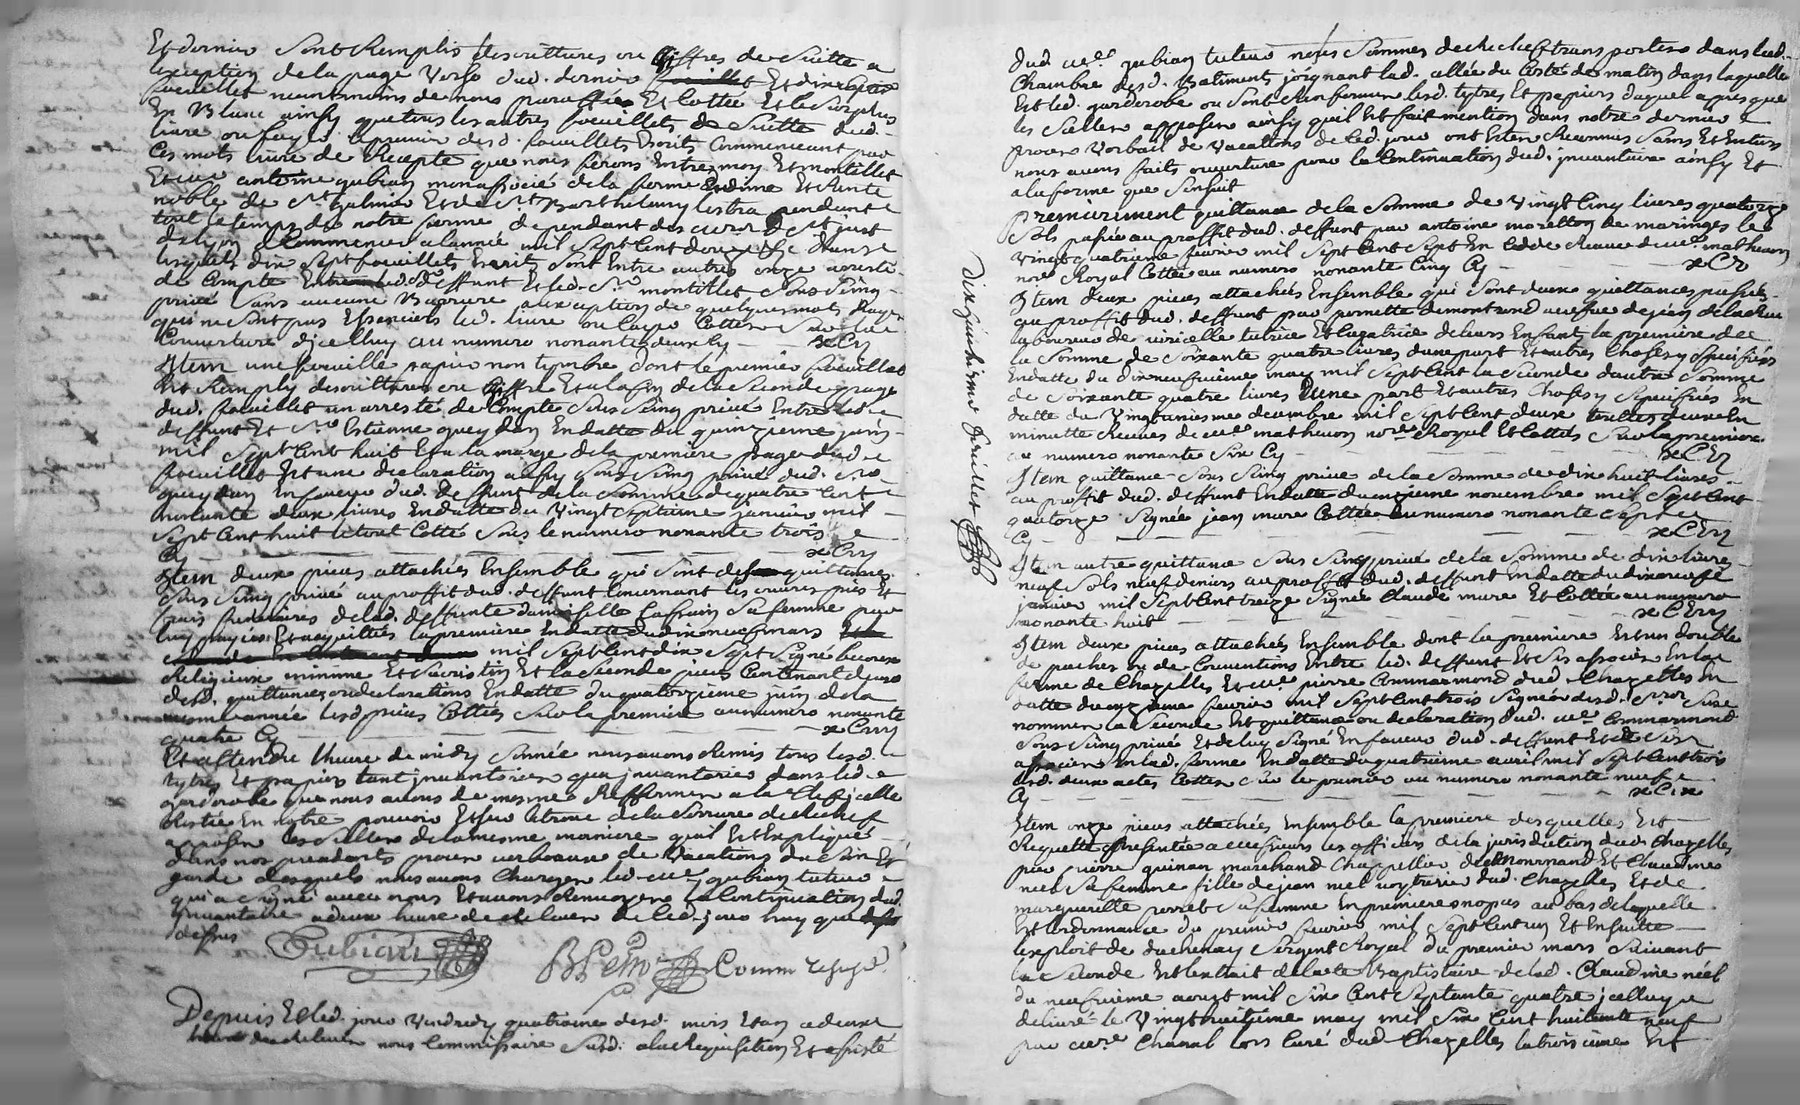 Et dernier sont Remplis descrittures ou chiffres de suitte a
lexception de la page verso dud. dernier feuillet Et dix huit
feuillets neantmoins de nous paraffés Et Cottés Et le surplus
En Blanc ainsy que tous les autres feuillets de suitte dud.
livre ou la premier desd. feuillets Escrits Commencent par
Ces mots livre de Recepte que nous ferons Entre moy Et montillet
Et me antoine gubian mon associé de la ferme Et dixme Et Rente
noble de st. galmier Et de st. Barthelemy lestra pendant
tout le temps de notre ferme dependant des
de lyon Commencer a lannée mil sept Cent douze dans
lesquels dix sept feuillets Escrits sont Entre autres onze arrestés
de Compte led. deffunt Et led. sr. montillet sous seing
privé sans aucune Rature a lexception de quelques mots Rayés
qui ne sont pas Essenciels led. livre ou Cotté sur la
Couverture dicelluy au numero nonante deux Cy — xxCij
Item une feuille papier non tymbré dont le premier feuillet
Est Remply descrittures ou chiffre Et a la fin de la seconde page
dud. feuillet un arresté de Compte sous seing privé Entre led.
deffunt Et sr. Estienne gueydan En datte du quinzieme juin
mil sept Cent huit Et a la marge de la premiere page dud.
feuillet Est une declaration aussy sous seing privé dud. sr.
gueydan En faveur dud. deffunt de la somme de quatre Cent
nonante deux livres En datte du vingt septieme janvier mil
sept Cent huit le tout Cotté sous le numero nonante trois
Cy — xxCiij
Item deux pieces attachées Ensemble qui sont des quittances
sous seing privé au proffit dud. deffunt Concernant les
frais funeraires de lad. deffunte damoiselle sa femme par
luy payées Et acquittés la premiere En datte du dix neuf mars
mil sept Cent dix sept signé
Religieux minime Et sacristin Et la seconde piece Contenant deux
desd. quittances ou declarations En datte du quatorzieme juin de la
mesme année lesd. pieces Cottées sur la premiere au numero nonante
quatre Cy — xxCiiij
Et attendu lheure de midy sonnée nous avons Remis tous lesd.
tytres Et papiers tant jnventoriés que a jnventorier dans led.
garderobe que nous avons de mesme Reffermer a la Clef jcelle
Restée En notre pouvoir Et sur lentrée de la serrure de Rechef
apposer les sellés de la mesme maniere quil Est Expliqué
dans nos precedants procés verbaux de Vacations du soin Et
garde desquels nous avons Charger led. me. gubian tuteur
qui a signé avec nous Et avons Renvoyer la Continuation dud.
jnventaire a deux heures de relevée de led. jour huy que
dessus
Gubian Commre susdt.
Depuis Et led. jour vendredy quatrieme desd. mois Et an a deux
heures de relevée nous Commissaire susd. a la Requisition Et assisté
Dix huitieme feuillet
dud me. gubian tuteur nous sommes de Rechef transportés dans lad.
Chambre desd. Batiments joignant lad. allée du Costé de matin dans laquelle
Est led. garderobe ou sont Renfermés lesd. tytres Et papiers duquel apres que
les Sellés apposés ainsy quil Est fait mention dans notre dernier
procés verbail de vacations de led. jour ont Estés Reconnus sains Et Entiers
nous avons faits ouverture pour la Continuation dud. jnventaire ainsy Et
a la forme que sensuit
Premierement quittance de la somme de vingt Cinq livres quatorze
sols passée au proffit dud. deffunt par antoine morellon de maringes le
vingt quatrieme fevrier mil sept Cent sept En Cedde Receue de me. mathevon
nore. Royal Cottée au numero nonante Cinq Cy — xxCv
Item deux pieces attachées Ensemble qui sont deux quittances passées
au proffit dud. deffunt par pernette demontrond veufve de jean delarue
laboureur de viricelle tutrice Et Curatrice de leurs Enfants la premiere de
la somme de soixante quatre livres dune part Et autres Choses y speciffiés
En datte du dix neufvieme may mil sept Cent la seconde dautre somme
de soixante quatre livres dune part Et autres Choses y speciffiés En
datte du vingt unieme decembre mil sept Cent deux
minutte Receues de me. mathevon nore. Royal Et Cottés sur la premiere
au numero nonante six Cy — xxCvj
Item quittance sous seing privé de la somme de dix huit livres
au proffit dud. deffunt En datte du onzieme novembre mil sept Cent
quatorze signée jean mure Cottée au numero nonante sept
Cy — xxCvij
Item autre quittance sous seing privé de la somme de dix livres
neuf sols neuf deniers au proffit dud. deffunt En datte du dix neuf
janvier mil sept Cent treize signée Claude mure Et Cottée au numero
nonante huit — xxCviij
Item deux pieces attachées Ensemble dont la premiere Est un double
de paches ou de Conventions Entre led. deffunt Et ses associés En la
ferme de Chazelles Et me. pierre Commarmond dud. Chazelles En
datte du onzieme fevrier mil sept Cent trois signées desd. sus
nommés la seconde Est quittance ou declaration dud. me. Commarmond
sous seing privé Et de luy signé En faveur dud. deffunt Et de ses
associés En lad. ferme En datte du quatrieme avril mil sept Cent trois
lesd. deux actes Cottés sur le premier au numero nonante neuf
Cy — xxCix
Item onze pieces attachées Ensemble la premiere desquelles Est
Requette presentée a messieurs les officiers de la jurisdiction dud. Chazelles
par pierre guinan marchand Chappellier de Et Claudine
neel sa femme fille de jean neel dud. Chazelles Et de
marguerite perret sa femme En premieres nopces au bas de laquelle
Est ordonnance du premier fevrier mil sept Cent un Et Ensuitte
lexploit de duchenay sergent Royal du premier mars suivant
la seconde Est lextrait de lacte Baptistaire de lad. Claudine néel
du neufvieme aoust mil six Cent septante quatre jcelluy
delivré le vingt huitieme may mil six Cent huitante neuf
par mre. Chanal lors Curé dud. Chazelles la troisieme Est